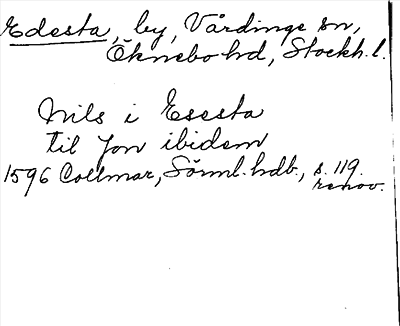 Edesta, by, Vårdinge sn,
Öknebo hd, Stockh. l.
Nils i Esesta
til Jon ibidem
1596 Collmar, Sörml. hdb., s. 119.
renov.